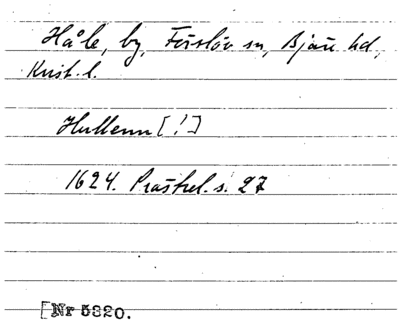 Håle, by, Förslöv sn, Bjäre hd,
Krist. l.
Hullenn [!]
1624. Prästrel. s. 27
[Nr 5320.